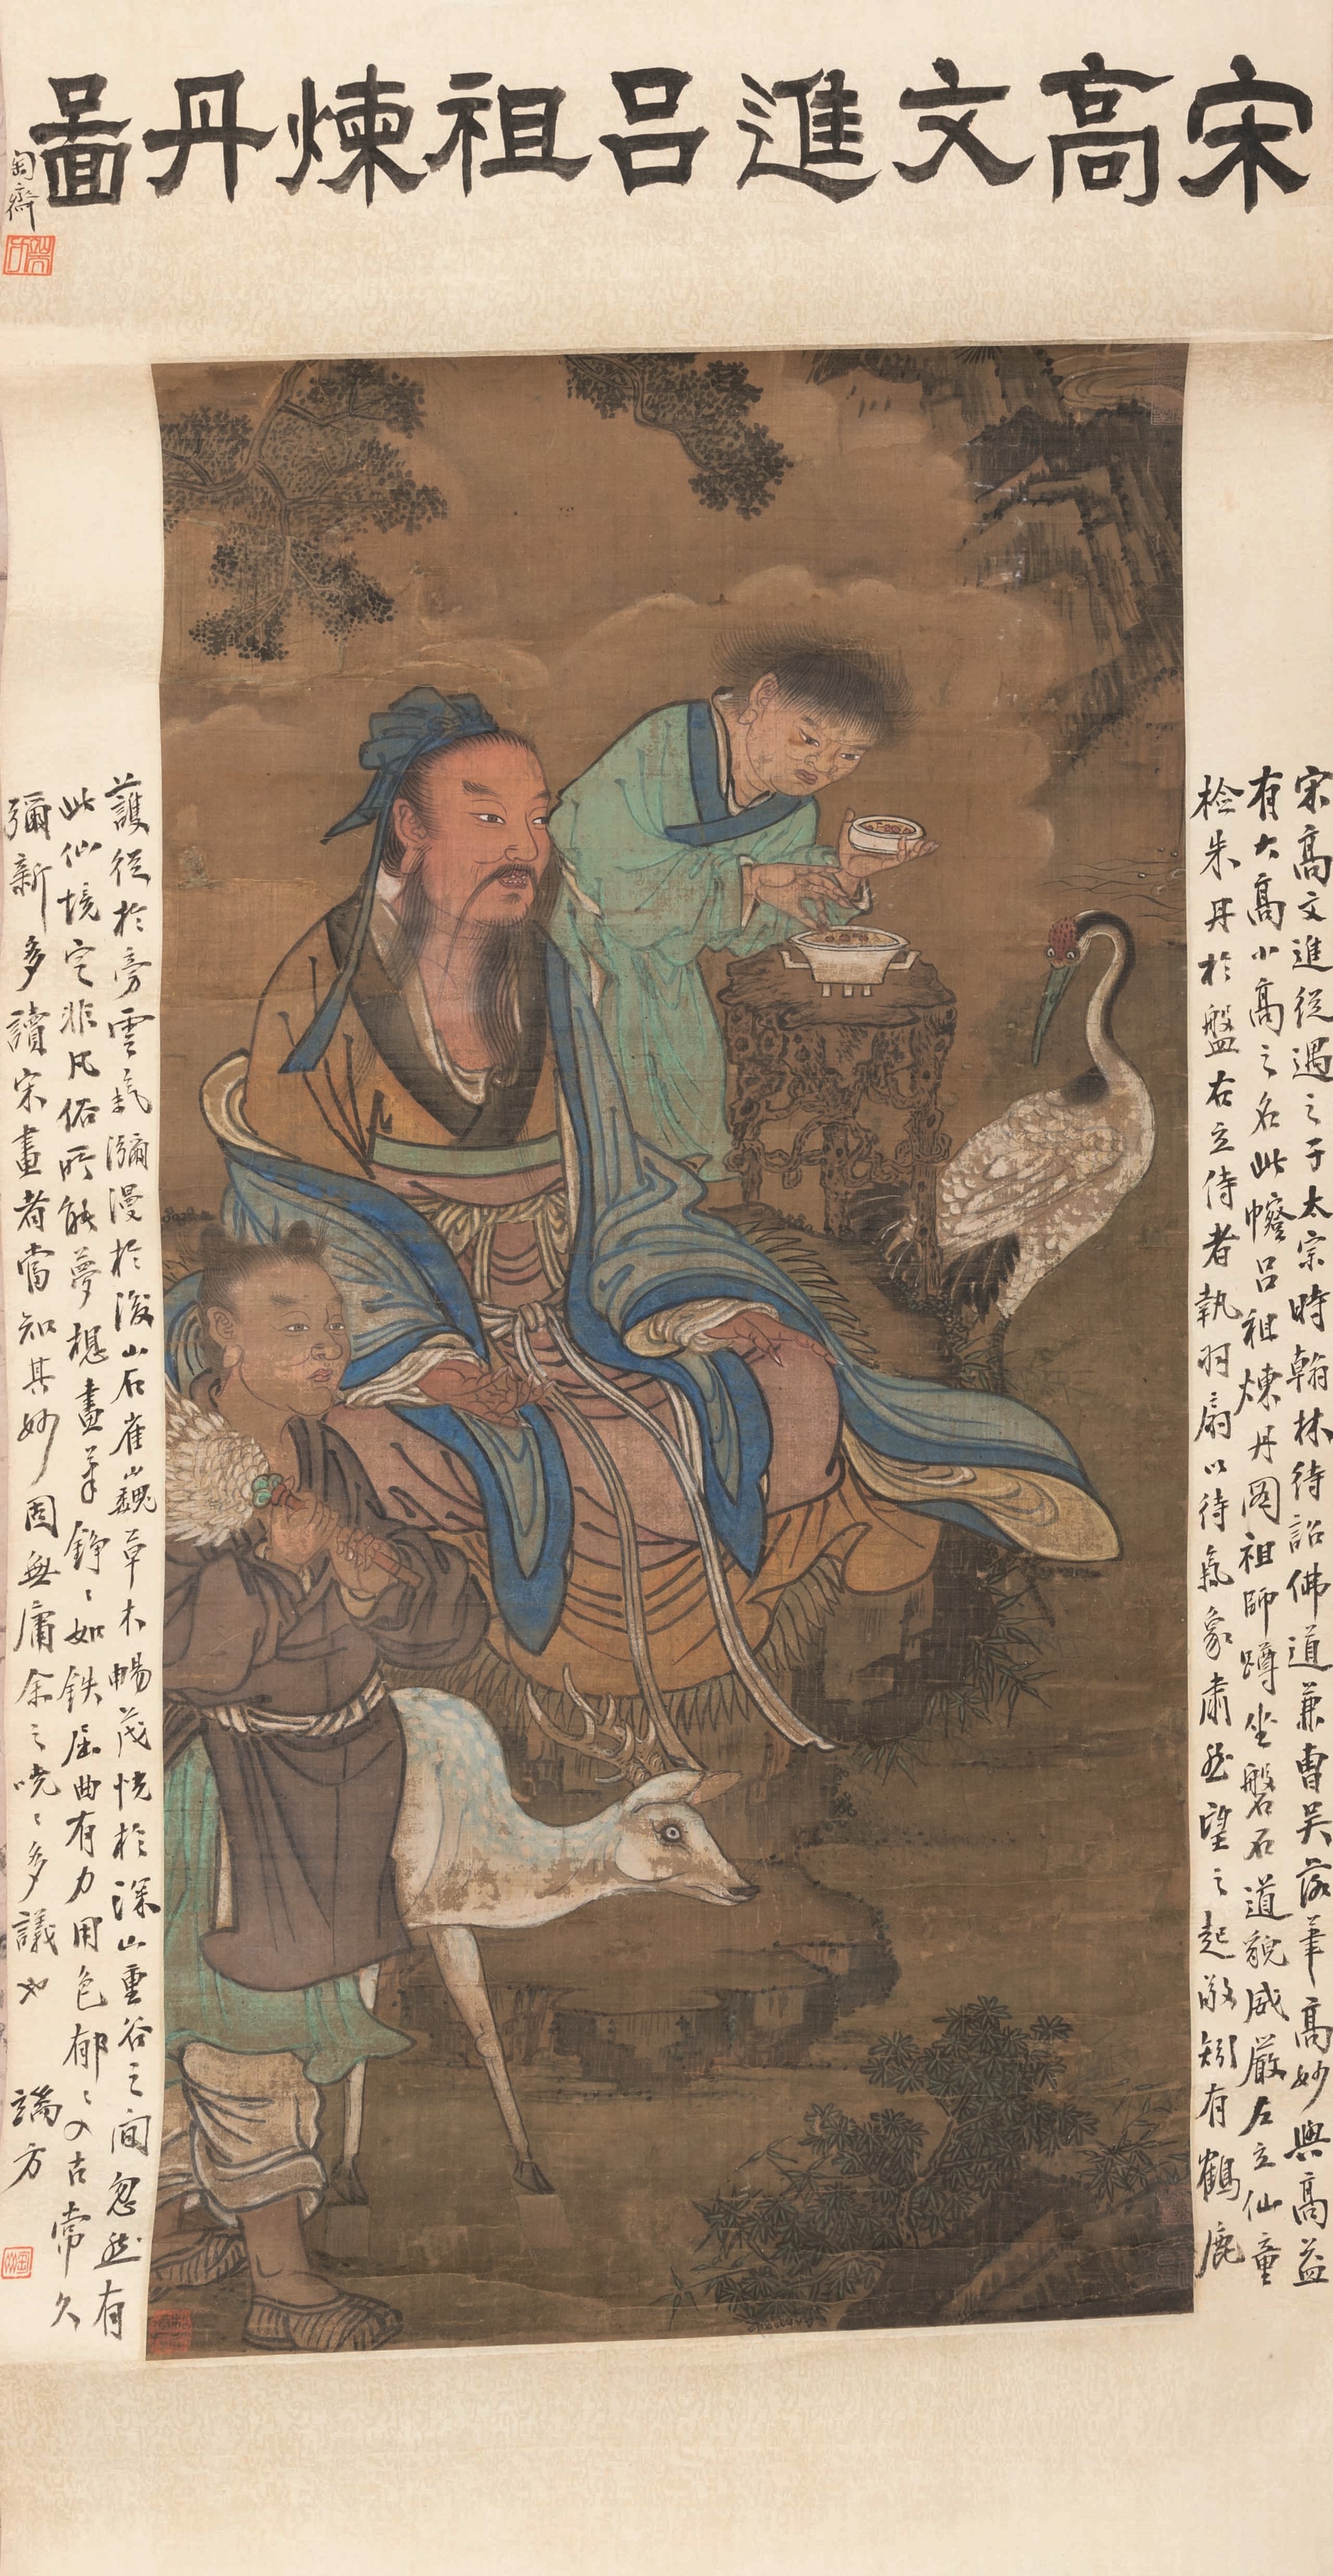 宋高文進呂祖煉丹啚
匋齋
宋高文進從遇之子太宗時翰林待詔佛道兼曹吴落筆高妙與高益
有大高小高之名此幨呂祖煉丹圖祖師蹲坐磐石道貌威嚴左立仙童
檢朱丹於盤右立侍者執羽扇以待氣象肅然望之起敬矧有鶴鹿
護從於旁雲氣瀰漫於後山石崔巍草木暢茂恍於深山重谷之間忽然有
此仙境定非凡俗所能夢想畫筆錚〻如鉄屈曲有力用色郁〻入古常久
彌新多讀宋畫者當知其妙固無庸余之嘵〻多議也 端方